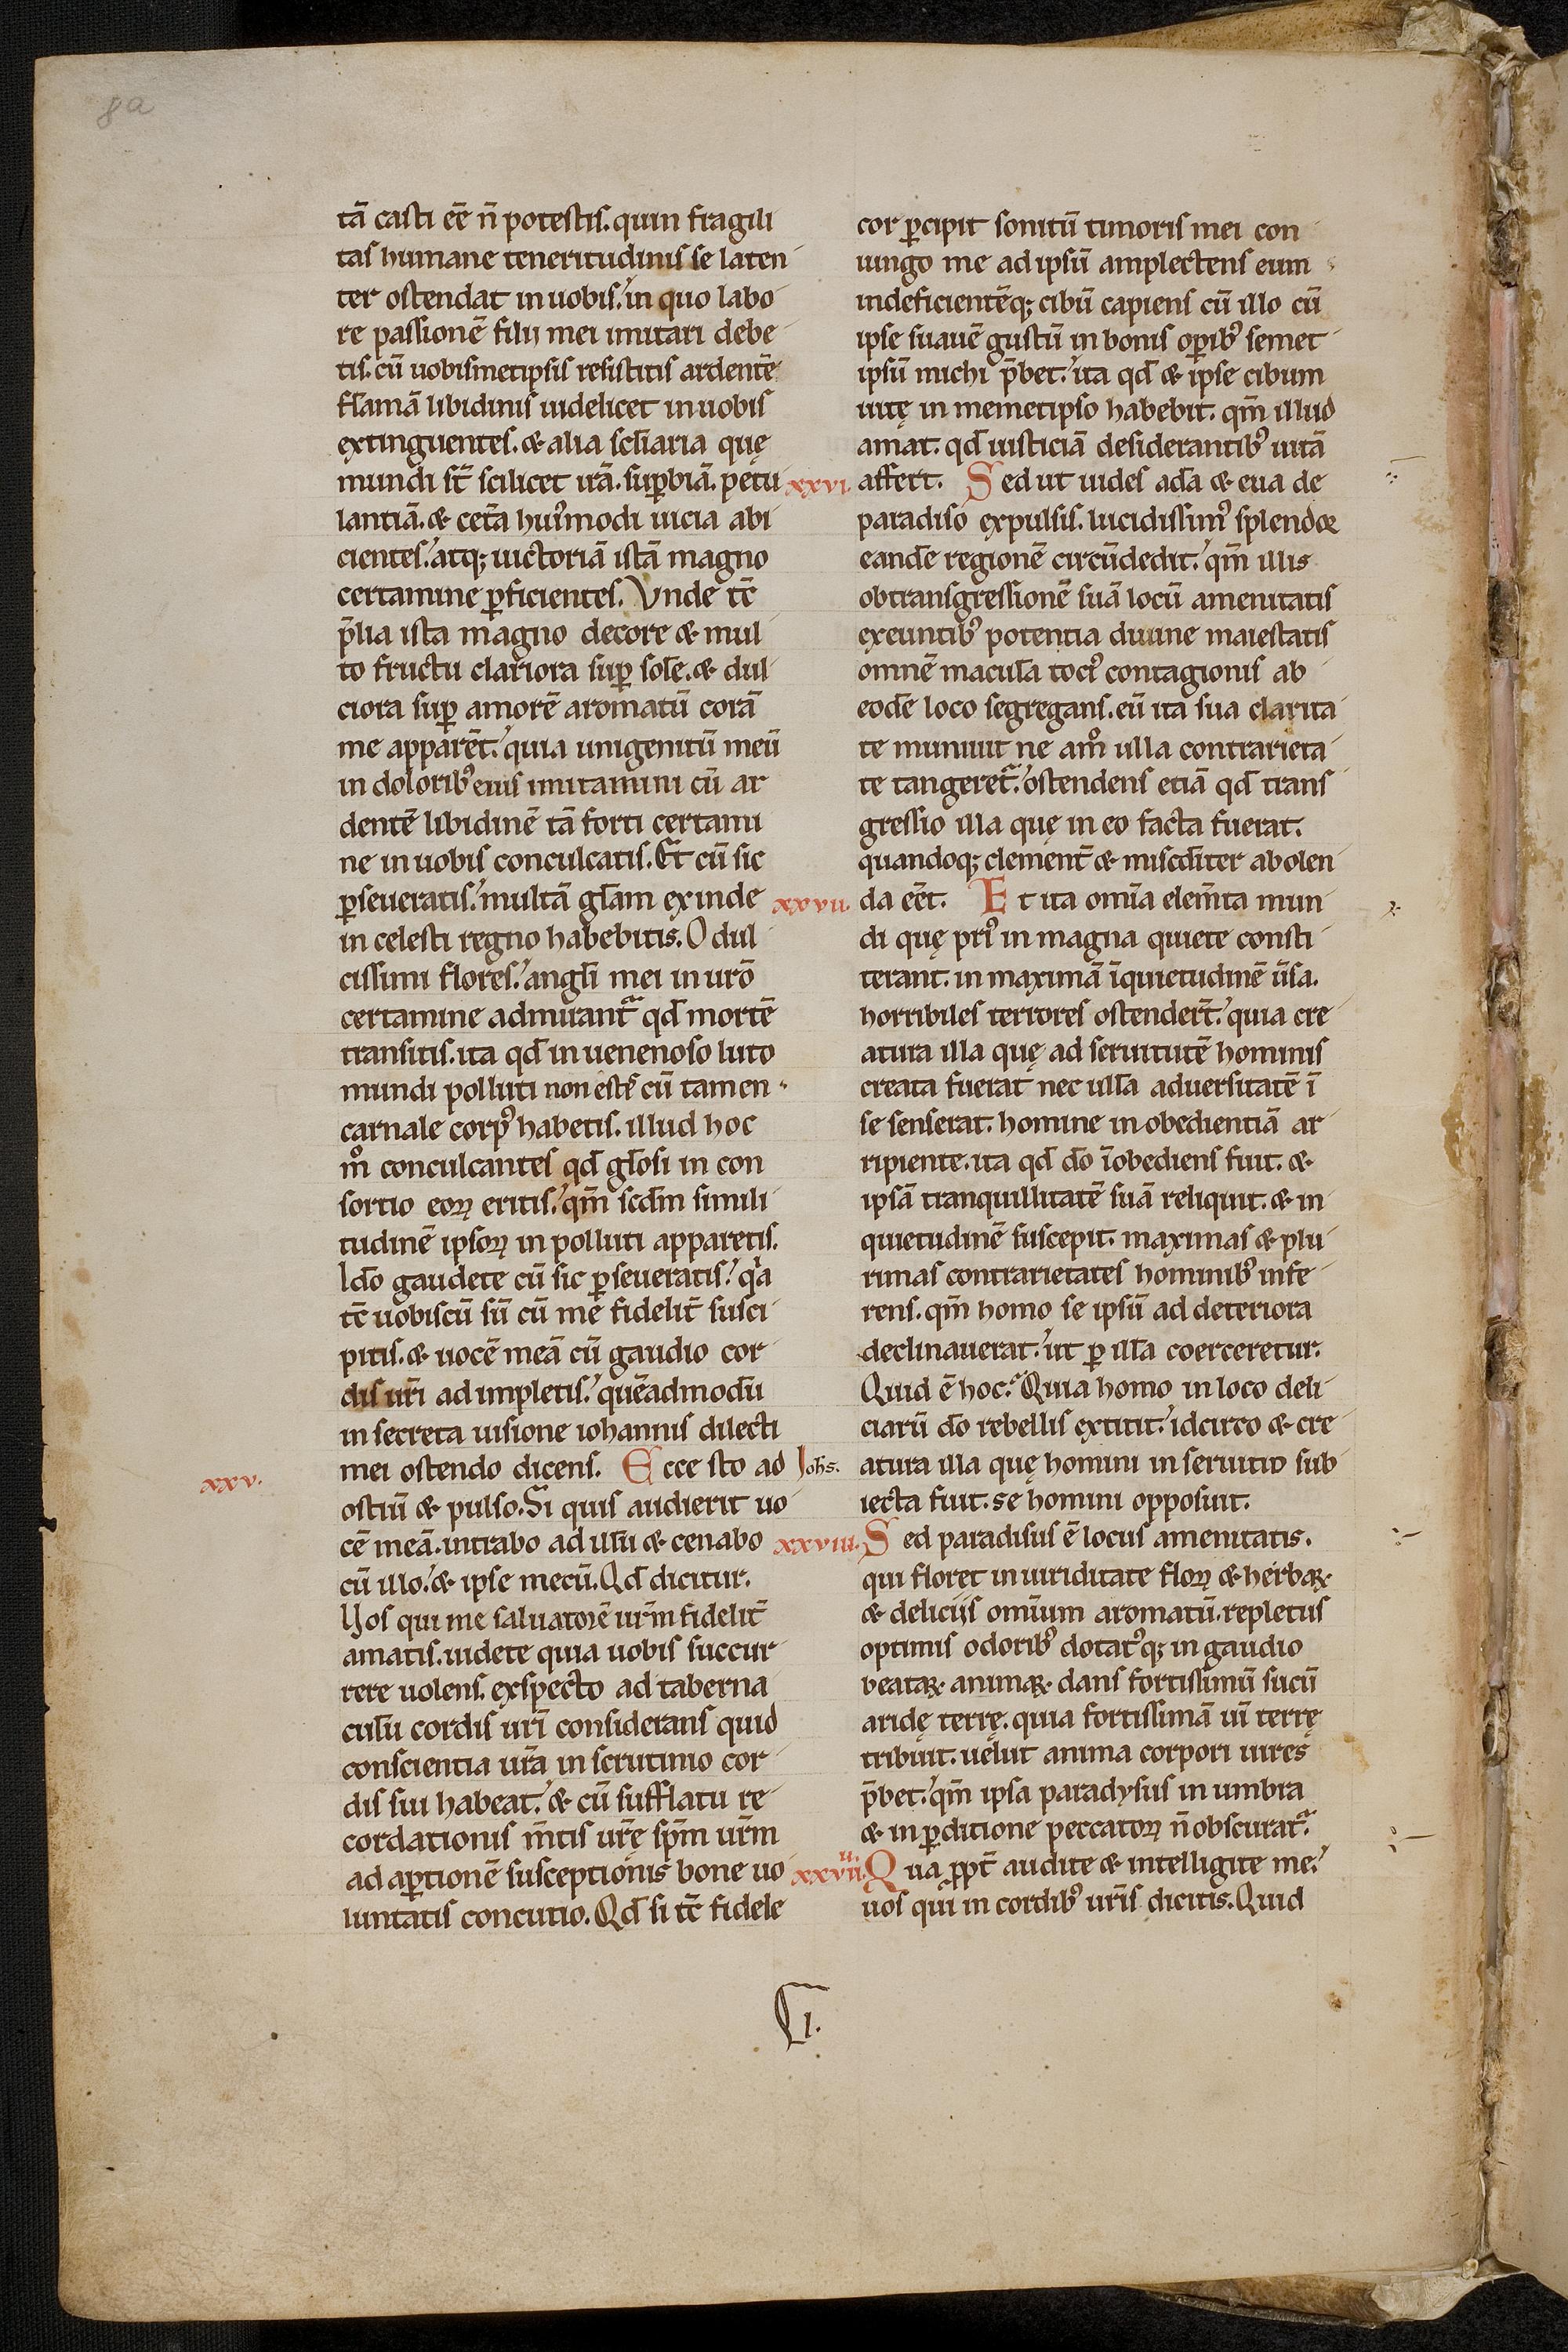 8a
tā casti eē n̄ potestis. quin fragili
tas humane teneritudinis se laten
ter ostendat in uobis. in quo labo
re passionē filii mei imitari debe
tis. cū uobismetipsis resistitis ardentē
flāmā libidinis uidelicet in uobis
extinguentes. & alia sclīaria quę
mundi st̄ scilicet irā. suꝑbiā. petu
lantiā. & cet̄a hui᷒modi uicia abi
cientes. atq; uictoriā istā magno
certamine ꝑficientes. Vnde tc̄
p̄lia ista magno decore & mul
to fructu clariora suꝑ solē. & dul
ciora suꝑ amorē aromatū corā
me apparēt. quia unigenitū meū
in dolorib᷒ eius imitamini cū ar
dentē libidinē tā forti certami
ne in uobis conculcatis. Et cū sic
ꝑseueratis. multā gl̄am exinde
in celesti regno habebitis. O dul
cissimi flores. angl̄i mei in ur̄o
certamine admirant̄ qd̄ mortē
transitis. ita qd̄ in uenenoso luto
mundi polluti non estis cū tamen
carnale corp᷒ habetis. illud hoc
m̊ conculcantes qd̄ gl̄osi in con
sortio eoꝝ eritis. qm̄ scd̄m simili
tudinē ipsoꝝ inpolluti apparetis.
Ido gaudete cū sic ꝑseueratis. qͣa
tc̄ uobiscū sū cū me fidelit̄ susci
pitis. & uocē meā cū gaudio cor
dis ur̄i adimpletis. quēadmodū
in secreta uisione iohannis dilecti
mei ostendo dicens. Ecce sto ad Johs.
xxv.
ostiū & pulso. Si quis audierit uo
cē meā. intrabo ad illū & cenabo
cū illo. & ipse mecū. Qd̄ dicitur.
Uos qui me saluatorē ur̄m fidelit̄
amatis. uidete quia uobis succur
rere uolens. exspecto ad taberna
culū cordis ur̄i considerans quid
conscientia ur̄a in scrutinio cor
dis sui habeat. & cū sufflatu re
cordationis m̄tis ur̄e sp̄m ur̄m
ad aꝑtionē susceptionis bone uo
luntatis concutio. Qd̄ si tc̄ fidele
cor ꝑcipit sonitū timoris mei con
iungo me ad ipsū amplectens eum
indeficientēq; cibū capiens cū illo cū
ipse suauē gustū in bonis oꝑib᷒ semet
ipsū michi p̄bet. ita qd̄ & ipse cibum
uitę in memetipso habebit. qm̄ illud
amat. qd̄ iusticiā desiderantib᷒ uitā
xxvi. affert. Sed ut uides adā & eua de
paradiso expulsis. lucidissim᷒ splendor
eandē regionē circūdedit. qm̄ illis
ob transgressionē suā locū amenitatis
exeuntib᷒ potentia diuine maiestatis
omnē maculā toci᷒ contagionis ab
eodē loco segregans. eū ita sua clarita
te muniuit ne am̊ ulla contrarieta
te tangeret̄. ostendens etiā qd̄ trans
gressio illa quę in eo facta fuerat.
quandoq; clement̄ & miscd̄iter abolen
xxvii. da eēt. Et ita omīa elem̄ta mun
di quę pri᷒ in magna quiete consti
terant. in maximā īquietudinē ūsa.
horribiles terrores ostender̄t. quia cre
atura illa quę ad seruitutē hominis
creata fuerat nec ullā aduersitatē ī
se senserat. homine inobedientiā ar
ripiente. ita qd̄ dō īobediens fuit. &
ipsā tranquillitatē suā reliquit. & in
quietudinē suscepit. maximas & plu
rimas contrarietates hominib᷒ infe
rens. qm̄ homo se ipsū ad deteriora
declinauerat. ut ꝑ illā coerceretur.
Quid ē hoc? Quia homo in loco deli
ciarū dō rebellis extitit. idcirco & cre
atura illa quę homini in seruitio sub
iecta fuit. se homini opposuit.
xxviii. Sed paradisus ē locus amenitatis.
qui floret in uiriditate floꝝ & herbaꝝ
& deliciis omīum aromatū. repletus
optimis odorib᷒ dotat᷒q; in gaudio
beataꝝ animaꝝ. dans fortissimū sucū
aridę terrę. quia fortissimā uī terrę
tribuit. uelut anima corpori uires
p̄bet. qm̄ ipsa paradysus in umbra
& in ꝑditione peccatoꝝ n̄ obscurat̄.
xxviiii. Qua ꝓpt̄ audite & intelligite me.
uos qui in cordib᷒ ur̄is dicitis. Quid